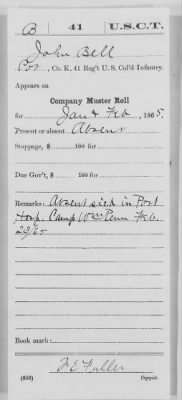 B 41 U.S.C.T.
John Bell
Cor, Co. K, 41 Reg't U. S. Col'd Infantry.
Appears on
Company Muster Roll
for Jan & Feb, 1865.
Present or absent Absent
Stoppage, $ 100 for
Due Gov't, $ 100 for
Remarks: Absent sick in Post
Hosp. Camp Wm Penn Feb.
22/65
Book mark:
F E Fuller
(858) Copyist.